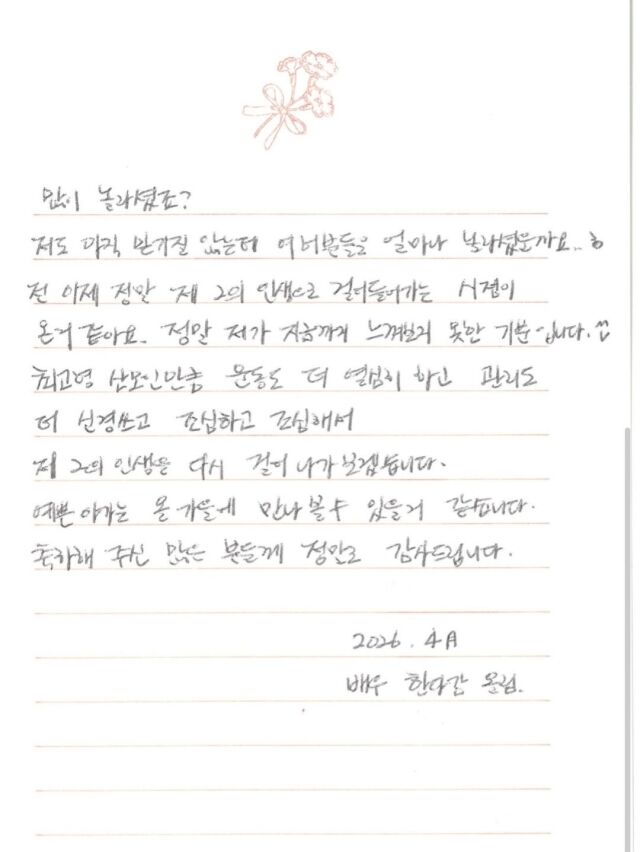 많이 놀라셨죠?
저도 아직 믿기질 않는데 여러분들은 얼마나 놀라셨을까요..ㅎ
전 이제 정말 제 2의 인생으로 걸어들어가는 시점이
온거 같아요. 정말 제가 지금까지 느껴보지 못한 기분입니다.^^
최고령 산모인만큼 운동도 더 열심히 하고 관리도
더 신경쓰고 조심하고 조심해서
제 2의 인생을 다시 걸어 나가보겠습니다.
예쁜 아가는 올 가을에 만나 볼 수 있을거 같습니다.
축하해 주신 많은 분들께 정말로 감사드립니다.
2026. 4月
배우 한다감 올림.